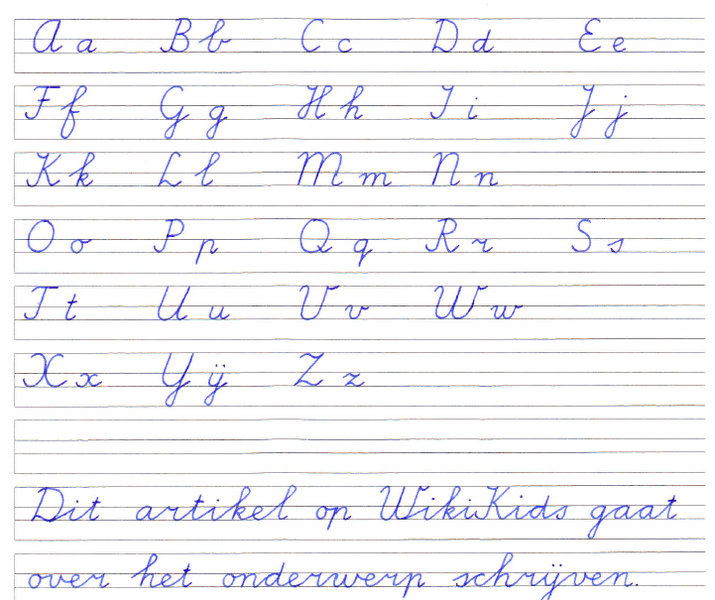 A a B b C c D d E e
F f G g H h I i J j
K k L l M m N n
O o P p Q q R r S s
T t U u V v W w
X x Y ÿ Z z
Dit artikel op WikiKids gaat
over het onderwerp schrijven.